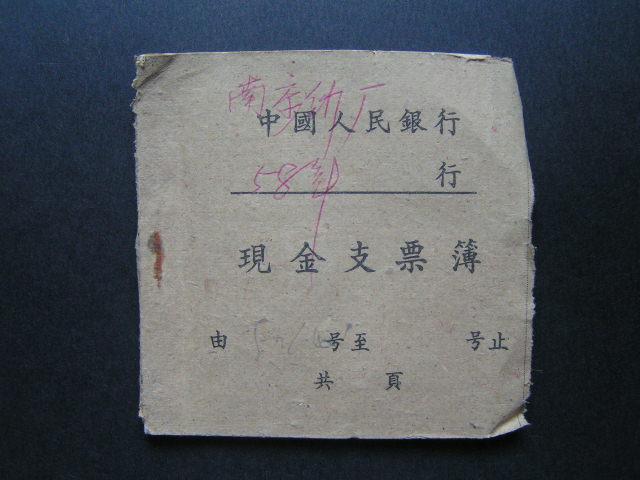 南京纱厂
中國人民銀行
58年
行
現金支票簿
由 号至 号止
共 頁